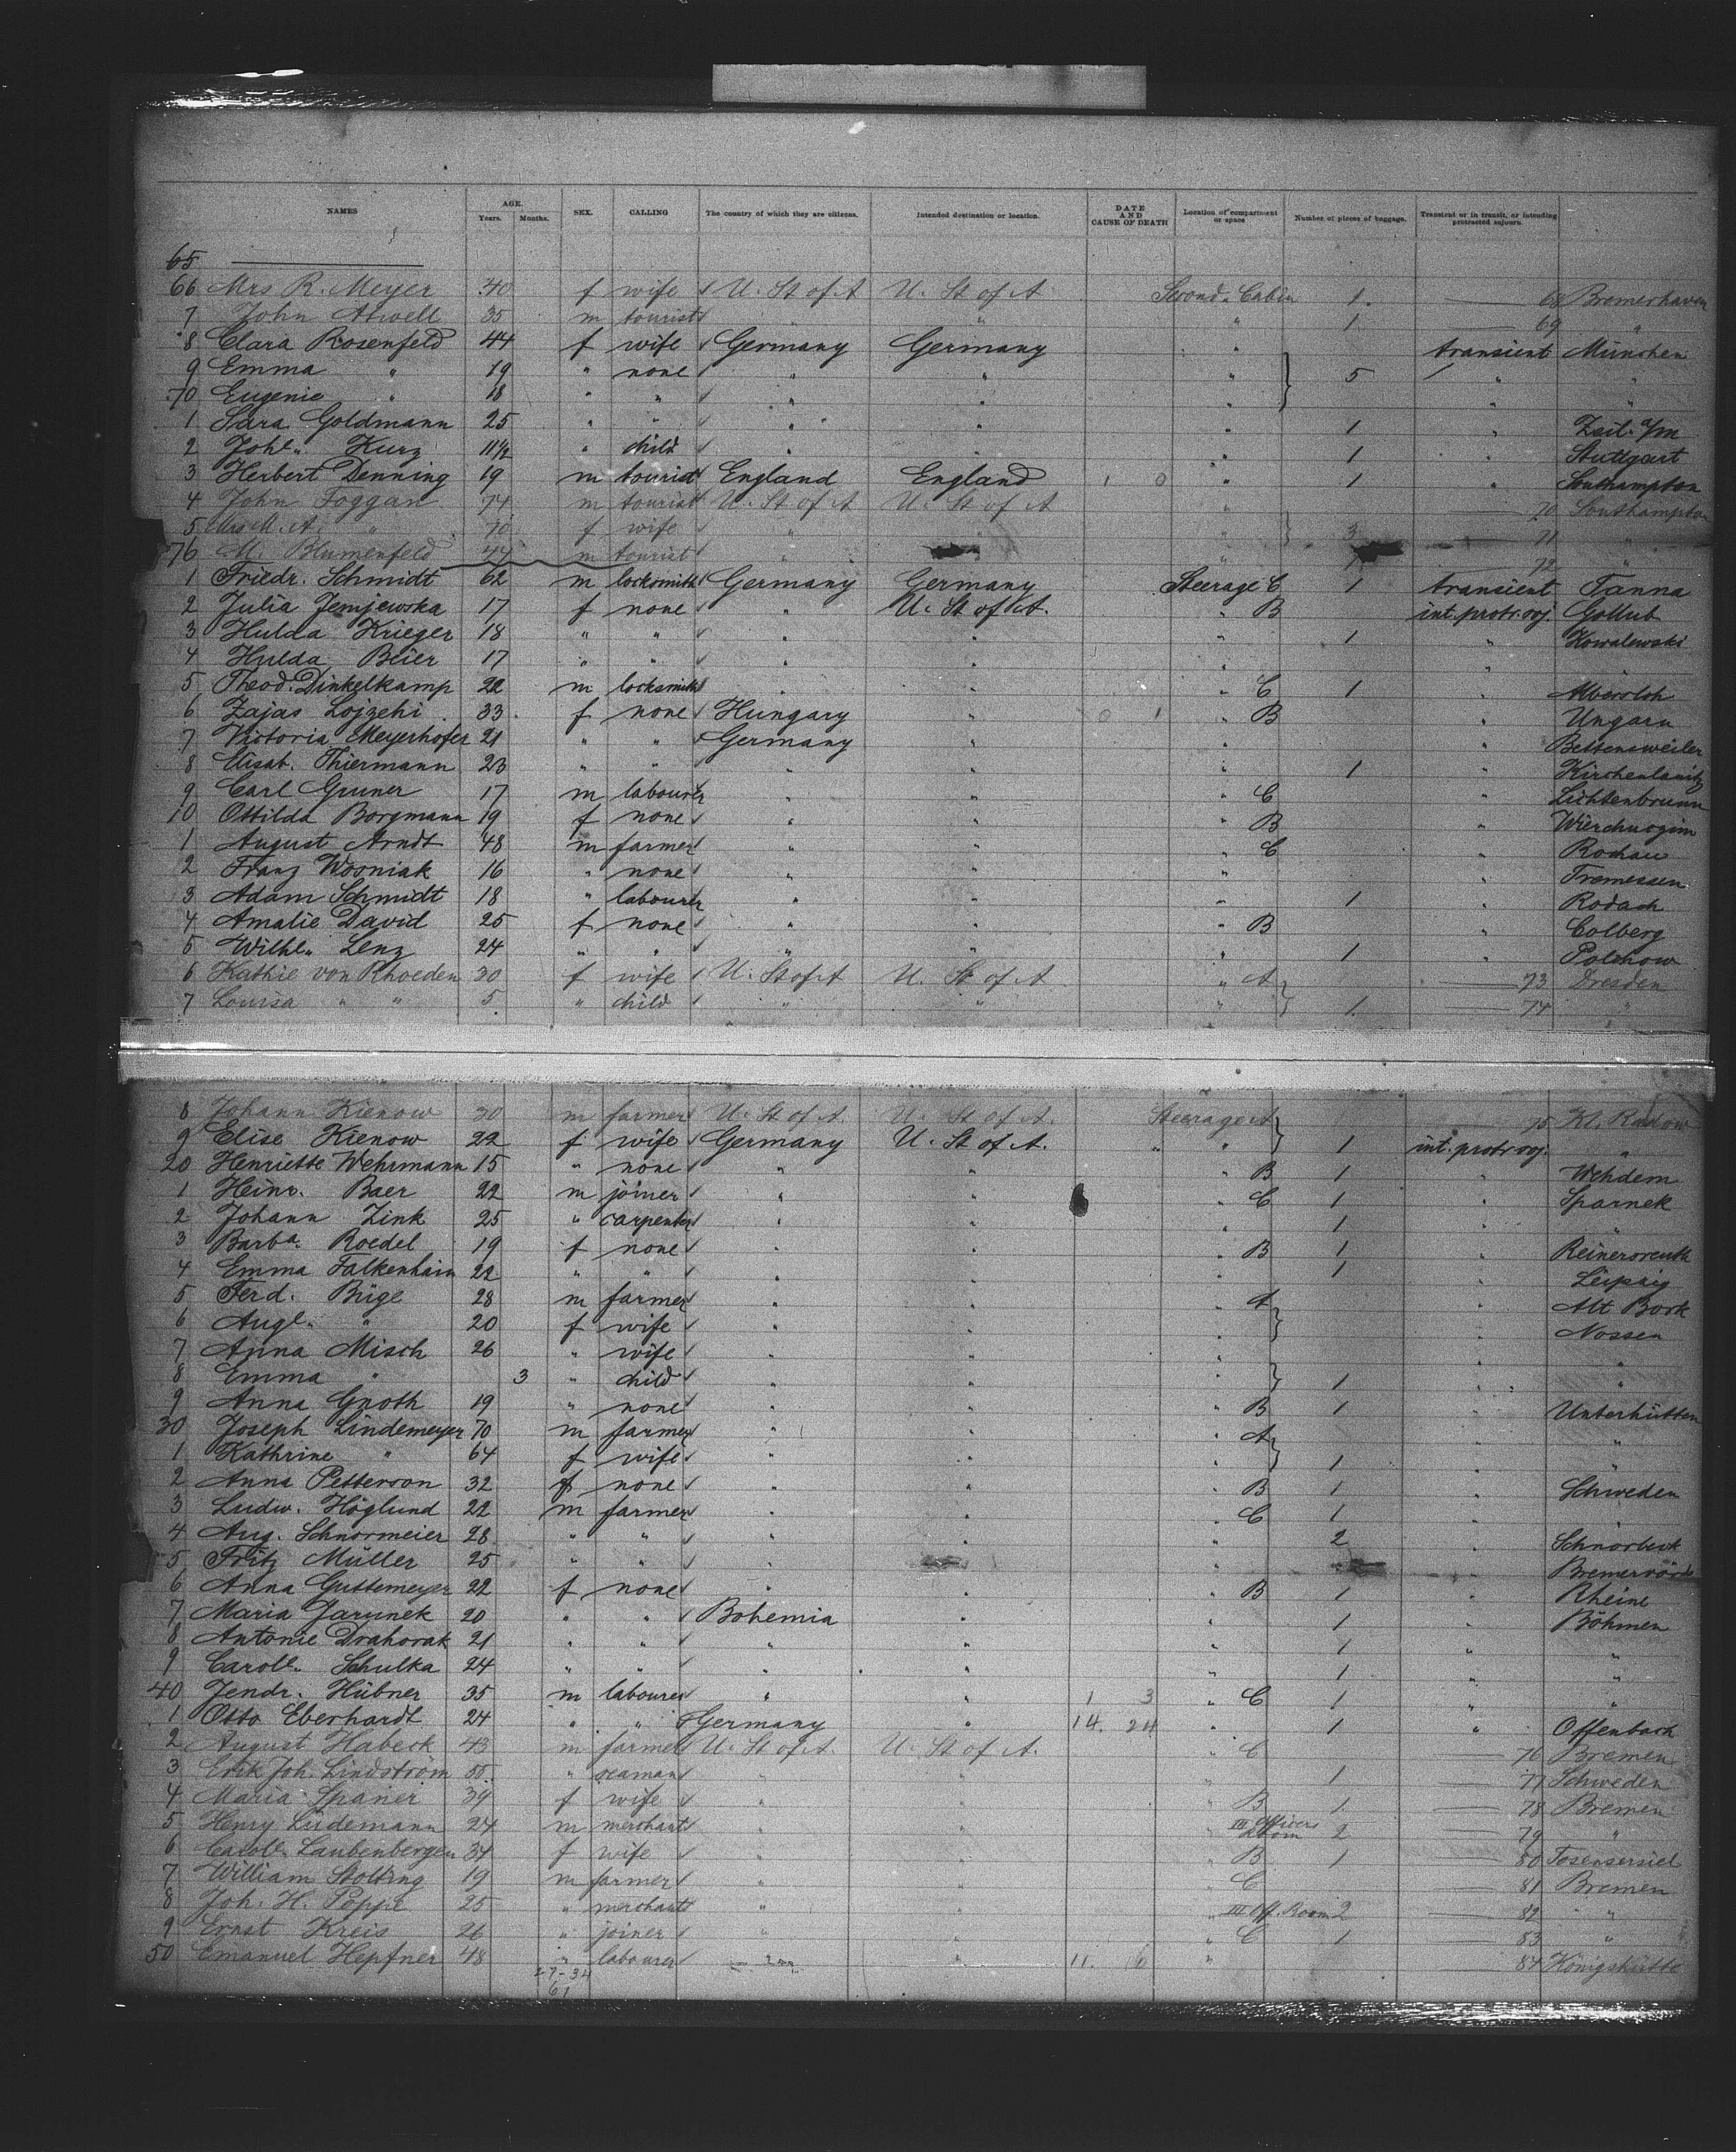 NAMES AGE. Years. Months. SEX. CALLING The country of which they are citizens. Intended destination or location. DATE AND CAUSE OF DEATH Location of compartment or space Number of pieces of baggage. Transient or in transit, or intending protracted sojourn.
65
66 Mrs R. Meyer 40 f wife U. St of A U. St of A Second Cabin 1 68 Bremerhaven
7 John Atwell 35 m tourist " " " 1 69 "
8 Clara Rosenfeld 44 f wife Germany Germany " transient München
9 Emma " 19 " none " " " 5 " "
70 Eugenie " 18 " " " " " " "
1 Sara Goldmann 25 " " " " " 1 " Zeil a/m
2 Johe. Kurz 11½ " child " " " 1 " Stuttgart
3 Herbert Denning 19 m tourist England England 1 0 " 1 " Southampton
4 John Foggan 74 m tourist U. St of A U. St of A " 70 Southampton
5 Mrs M. A. " 70 f wife " " " 3 71 "
76 M. Blumenfeld 44 m tourist " " 72 "
1 Friedr. Schmidt 62 m locksmith Germany Germany Steerage C 1 transient Tanna
2 Julia Jemjewska 17 f none " U. St of A. " B int. protr. soj. Gollub
3 Hulda Krieger 18 " " " " " 1 " Kowalewski
4 Hulda Beier 17 " " " " " " "
5 Theod. Dinkelkamp 22 m locksmith " " " C 1 " Albersloh
6 Zajas Lojzehi 33 f none Hungary " 0 1 " B " Ungarn
7 Victoria Meyerhofer 21 " " Germany " " " Bettensweiler
8 Elisab. Thiermann 23 " " " " " 1 " Kirchenlamitz
9 Carl Gruner 17 m labourer " " " C " Lichtenbrunn
10 Ottilda Borgmann 19 f none " " " B "
1 August Arndt 48 m farmer " " " C " Rochau
2 Franz Wosniak 16 " none " " " " Tremessen
3 Adam Schmidt 18 " labourer " " " 1 " Rodach
4 Amalie David 25 f none " " " B " Colberg
5 Wilhe. Lenz 24 " " " " " 1 " Polchow
6 Kathie von Rhoeden 30 f wife U. St of A U. St of A " A 73 Dresden
7 Louisa " " 5 " child " " " 1 74 "
8 Johann Kienow 30 m farmer U. St of A. U. St of A. Steerage A 75 Kl. Radow
9 Elise Kienow 22 f wife Germany U. St of A. " " 1 int. protr. soj. "
20 Henriette Wehrmann 15 " none " " " B 1 " Wehdem
1 Heinr. Baer 22 m joiner " " " C 1 " Sparnek
2 Johann Zink 25 " carpenter " " " 1 " "
3 Barba. Roedel 19 f none " " " B 1 " Reinersreuth
4 Emma Falkenhain 22 " " " " " 1 " Leipzig
5 Ferd. Büge 28 m farmer " " " A " Alt Bork
6 Auge. " 20 f wife " " " " Nossen
7 Anna Misch 26 " wife " " " " "
8 Emma " 3 " child " " " 1 " "
9 Anna Gnoth 19 " none " " " B 1 " Unterhütten
30 Joseph Lindemeyer 70 m farmer " " " A " "
1 Kathrine " 64 f wife " " " 1 " "
2 Anna Petterson 32 f none " " " B 1 " Schweden
3 Ludw. Höglund 22 m farmer " " " C 1 " "
4 Aug. Schnormeier 28 " " " " " 2 "
5 Fritz Müller 25 " " " " " Bremervörde
6 Anna Guttemeyer 22 f none " " " B 1 " Rheine
7 Maria Jarunek 20 " " Bohemia " " 1 " Böhmen
8 Antonie Drahorak 21 " " " " " 1 " "
9 Carole. Schulka 24 " " " " " 1 " "
40 Jendr. Hübner 35 m labourer " " 1 3 " C 1 " "
1 Otto Eberhardt 24 " " Germany " 14. 24 " 1 " Offenbach
2 August Habeck 43 m farmer U. St of A. U. St of A. " C 76 Bremen
3 Erik Joh. Lindström 55 " seaman " " " 1 77 Schweden
4 Maria Spanier 39 f wife " " " B 1 78 Bremen
5 Henry Lüdemann 24 m merchant " " III Officers Room 2 79 "
6 Carole. Laubenberger 34 f wife " " " B 1 80
7 William Stolting 19 m farmer " " " C 81 Bremen
8 Joh. H. Poppe 25 " merchant " " " III Off. Room 2 82 "
9 Ernst Kreis 26 " joiner " " " C 1 83 "
50 Emanuel Hepfner 48 " labourer " " 11. 6 " 84 Königshütte
27-34
61